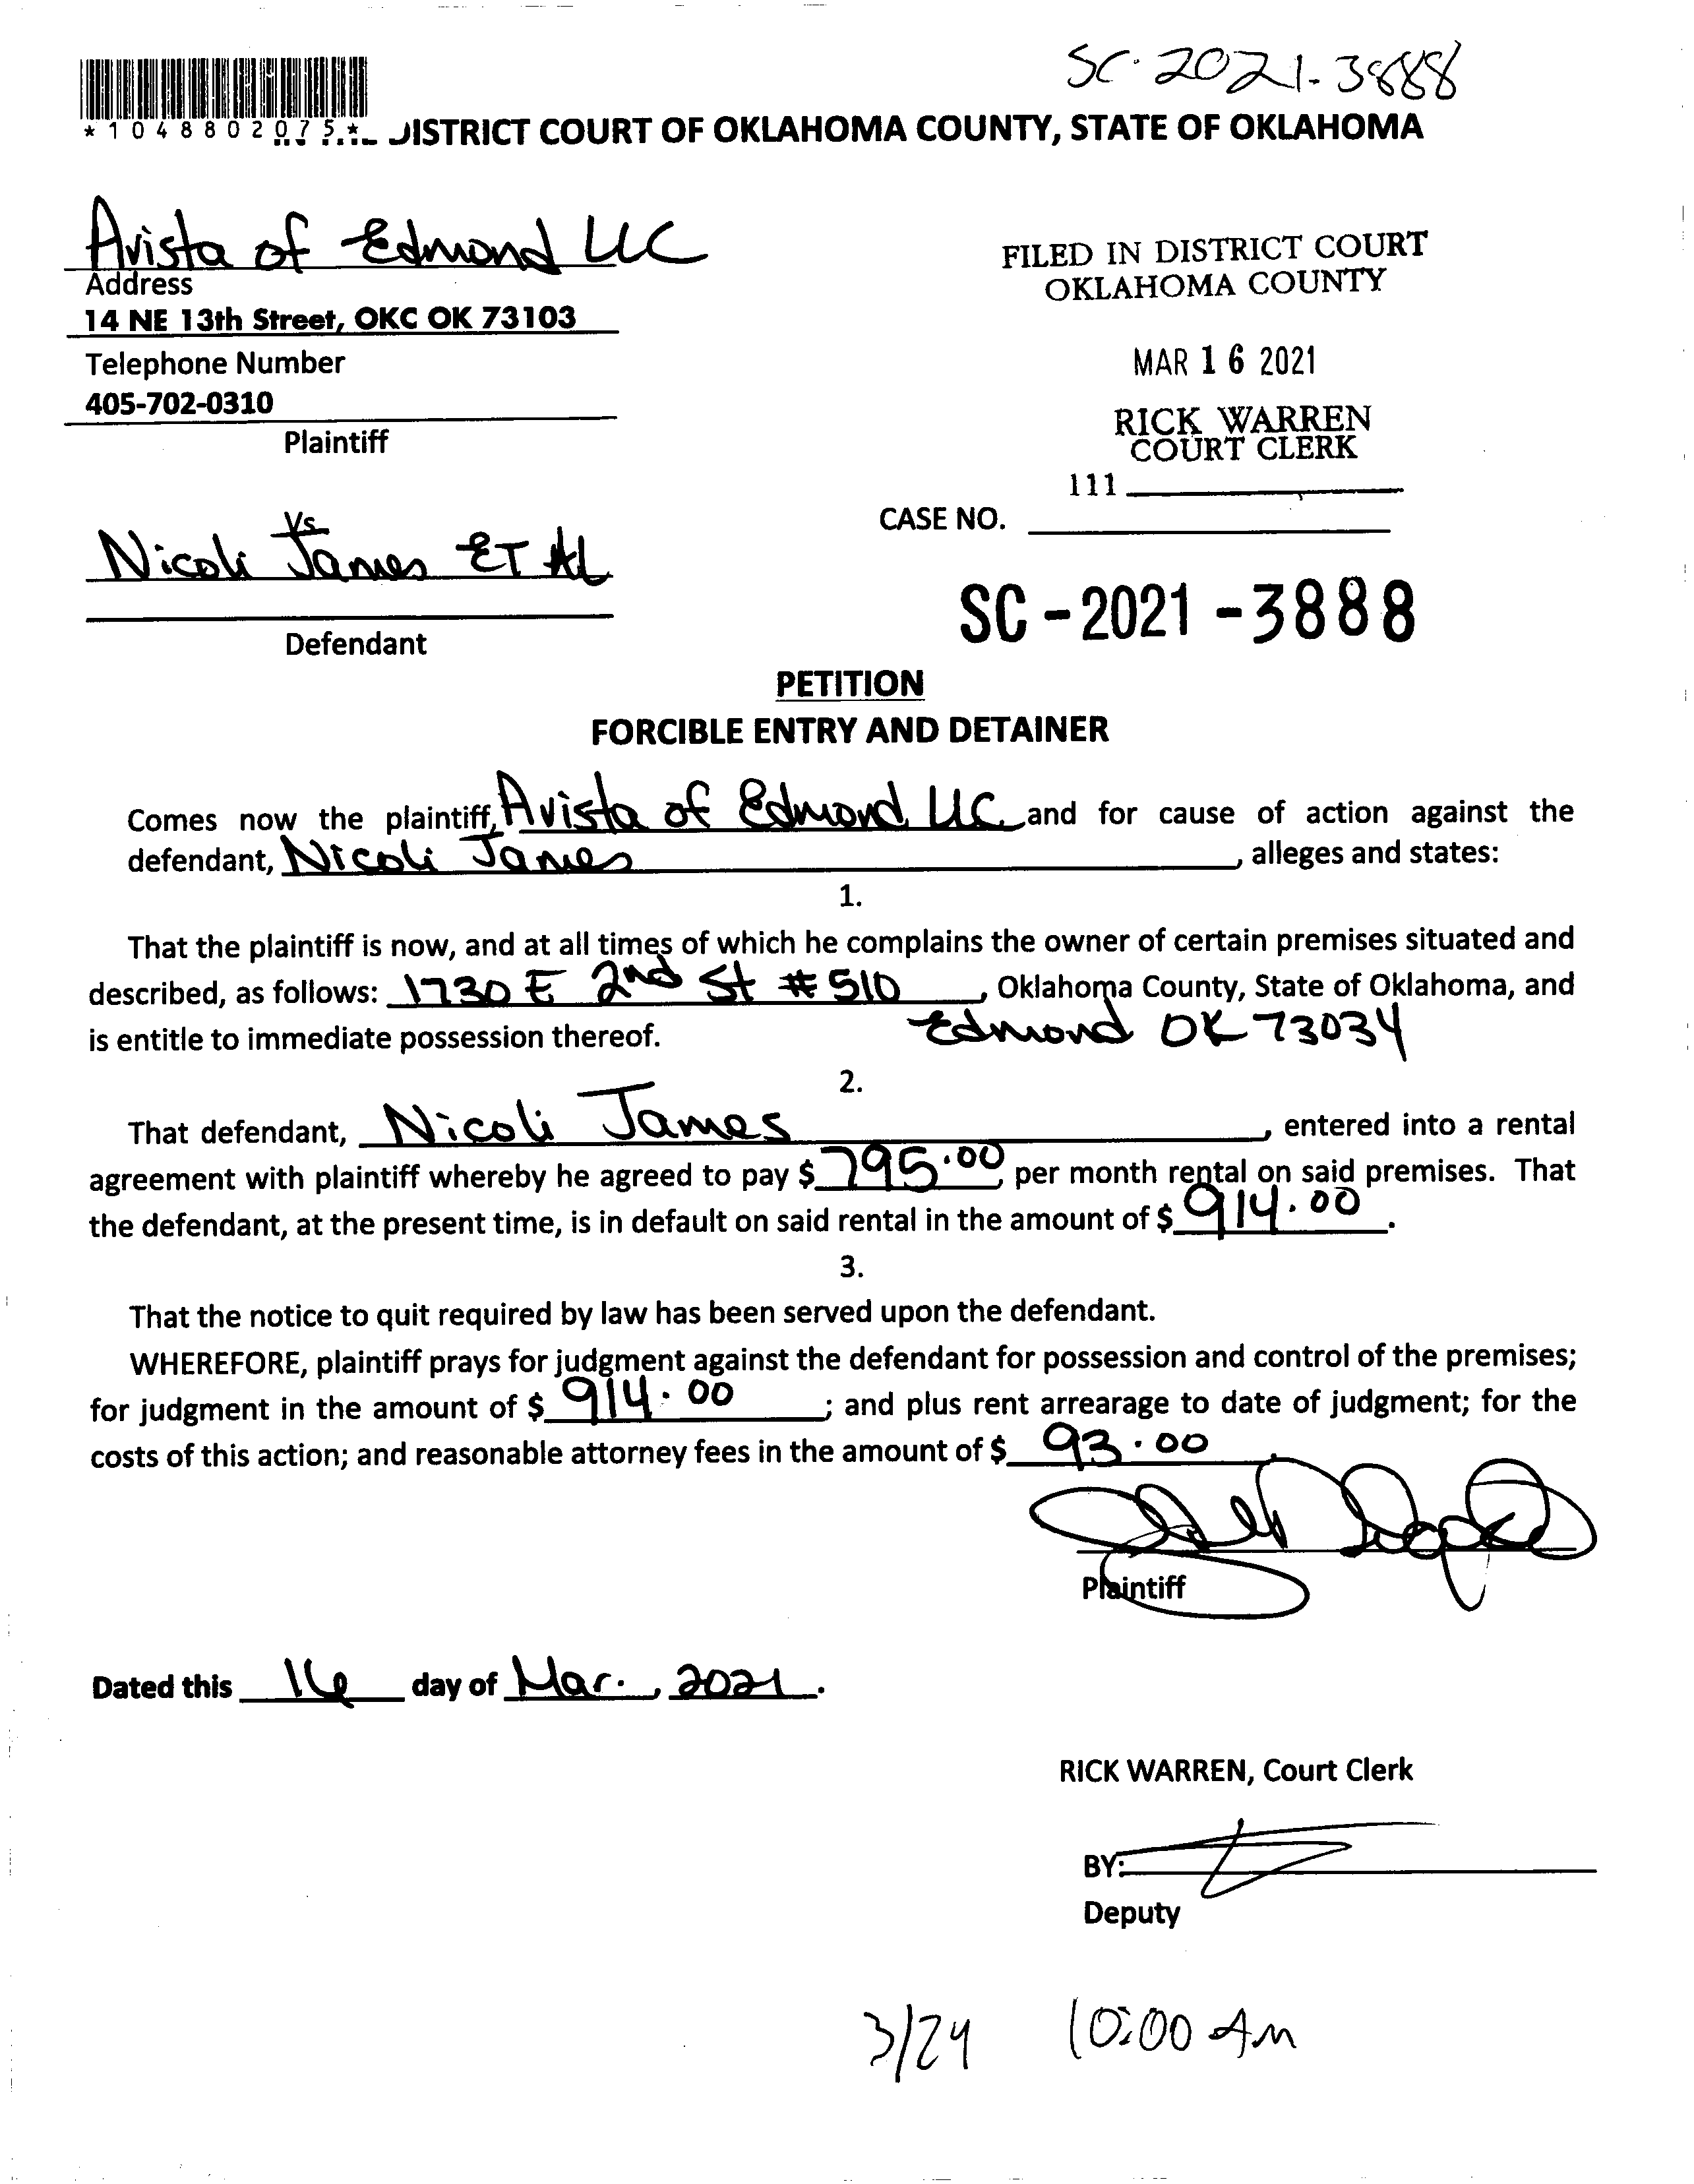 SC-2021-3888
*1048802075*
DISTRICT COURT OF OKLAHOMA COUNTY, STATE OF OKLAHOMA
Avista of Edmond LLC
Address
14 NE 13th Street, OKC OK 73103
Telephone Number
405-702-0310
Plaintiff
FILED IN DISTRICT COURT
OKLAHOMA COUNTY
MAR 16 2021
RICK WARREN
COURT CLERK
111
Vs
Nicoli James ET AL
Defendant
CASE NO.
SC-2021-3888
PETITION
FORCIBLE ENTRY AND DETAINER
Comes now the plaintiff, Avista of Edmond LLC and for cause of action against the
defendant, Nicoli James, alleges and states:
1.
That the plaintiff is now, and at all times of which he complains the owner of certain premises situated and
described, as follows: 1730 E 2nd St #510, Oklahoma County, State of Oklahoma, and
is entitle to immediate possession thereof. Edmond OK 73034
2.
That defendant, Nicoli James, entered into a rental
agreement with plaintiff whereby he agreed to pay $ 795.00 per month rental on said premises. That
the defendant, at the present time, is in default on said rental in the amount of $ 914.00.
3.
That the notice to quit required by law has been served upon the defendant.
WHEREFORE, plaintiff prays for judgment against the defendant for possession and control of the premises;
for judgment in the amount of $ 914.00; and plus rent arrearage to date of judgment; for the
costs of this action; and reasonable attorney fees in the amount of $ 93.00
Plaintiff
Dated this 16 day of Mar., 2021.
RICK WARREN, Court Clerk
BY:
Deputy
3/24 10:00 AM